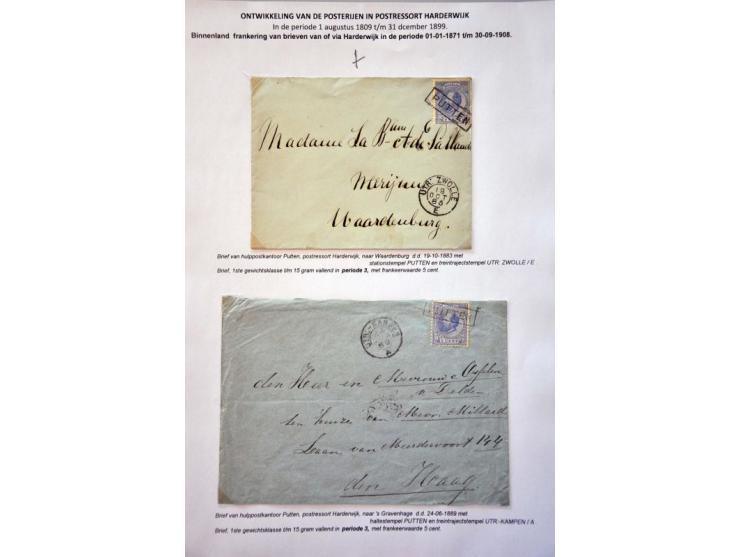 ONTWIKKELING VAN DE POSTERIJEN IN POSTRESSORT HARDERWIJK
In de periode 1 augustus 1809 t/m 31 dcember 1899.
Binnenland frankering van brieven van of via Harderwijk in de periode 01-01-1871 t/m 30-09-1908.
PUTTEN
Madame La Bnne Ct de Pallandt
UTR. ZWOLLE
19
OCT
E
Merijnen
Waardenburg.
Brief van hulppostkantoor Putten, postressort Harderwijk, naar Waardenburg d.d. 19-10-1883 met
stationstempel PUTTEN en treintrajectstempel UTR: ZWOLLE / E
Brief, 1ste gewichtsklasse t/m 15 gram vallend in periode 3, met frankeerwaarde 5 cent.
PUTTEN
UTR.-KAMPEN
den Heer en Mevrouw
v. Delden
ten huize van Mevr. Millard
Laan van Meerdervoort 144
den Haag
Brief van hulppostkantoor Putten, postressort Harderwijk, naar 's Gravenhage d.d. 24-06-1889 met
haltestempel PUTTEN en treintrajectstempel UTR.-KAMPEN / A
Brief, 1ste gewichtsklasse t/m 15 gram vallend in periode 3, met frankeerwaarde 5 cent.